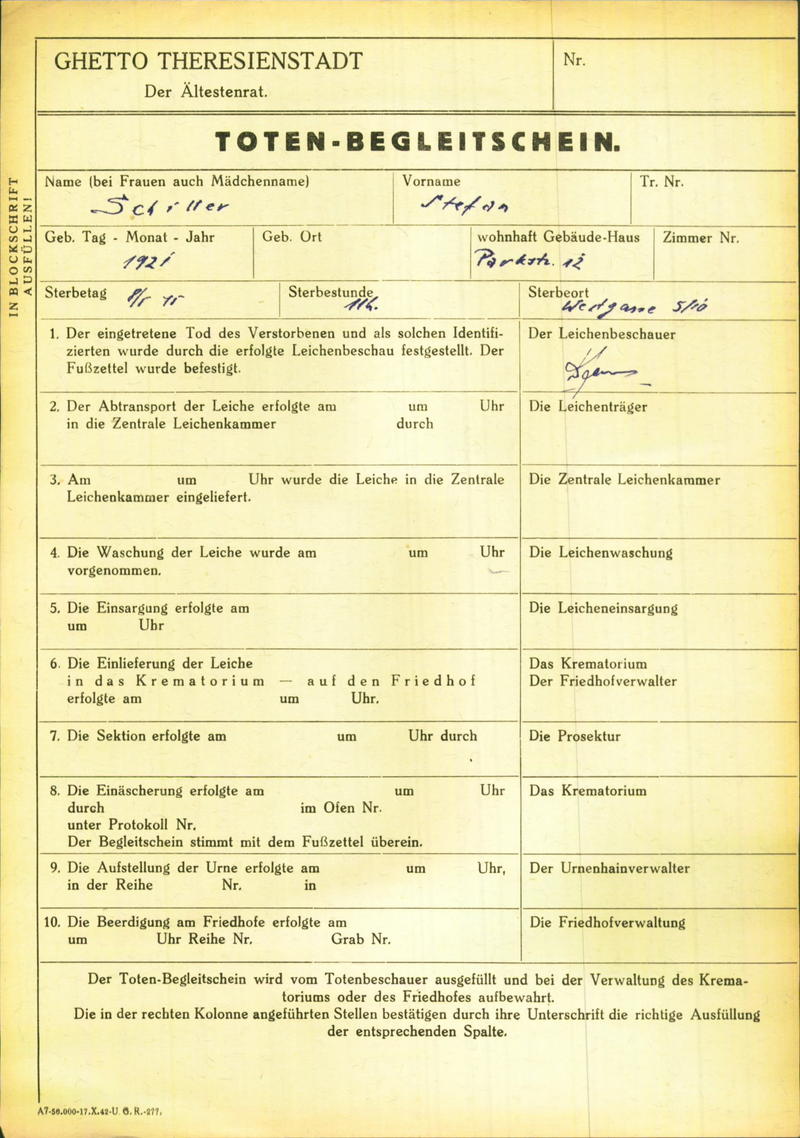 GHETTO THERESIENSTADT
Der Ältestenrat.
Nr.
TOTEN-BEGLEITSCHEIN.
IN BLOCKSCHRIFT
AUSFÜLLEN!
Name (bei Frauen auch Mädchenname)
Vorname
Tr. Nr.
Schiller
Stefan
Geb. Tag - Monat - Jahr
Geb. Ort
wohnhaft Gebäude-Haus
Zimmer Nr.
1921
Parkstr. 12
Sterbetag
Sterbestunde
Sterbeort
Westgasse
1. Der eingetretene Tod des Verstorbenen und als solchen Identifi-
zierten wurde durch die erfolgte Leichenbeschau festgestellt. Der
Fußzettel wurde befestigt.
Der Leichenbeschauer
2. Der Abtransport der Leiche erfolgte am um Uhr
in die Zentrale Leichenkammer durch
Die Leichenträger
3. Am um Uhr wurde die Leiche in die Zentrale
Leichenkammer eingeliefert.
Die Zentrale Leichenkammer
4. Die Waschung der Leiche wurde am um Uhr
vorgenommen.
Die Leichenwaschung
5. Die Einsargung erfolgte am
um Uhr
Die Leicheneinsargung
6. Die Einlieferung der Leiche
in das Krematorium — auf den Friedhof
erfolgte am um Uhr.
Das Krematorium
Der Friedhofverwalter
7. Die Sektion erfolgte am um Uhr durch
Die Prosektur
8. Die Einäscherung erfolgte am um Uhr
durch im Ofen Nr.
unter Protokoll Nr.
Der Begleitschein stimmt mit dem Fußzettel überein.
Das Krematorium
9. Die Aufstellung der Urne erfolgte am um Uhr,
in der Reihe Nr. in
Der Urnenhainverwalter
10. Die Beerdigung am Friedhofe erfolgte am
um Uhr Reihe Nr. Grab Nr.
Die Friedhofverwaltung
Der Toten-Begleitschein wird vom Totenbeschauer ausgefüllt und bei der Verwaltung des Krema-
toriums oder des Friedhofes aufbewahrt.
Die in der rechten Kolonne angeführten Stellen bestätigen durch ihre Unterschrift die richtige Ausfüllung
der entsprechenden Spalte.
A7-50.000-17.X.42-U. G. R.-277.